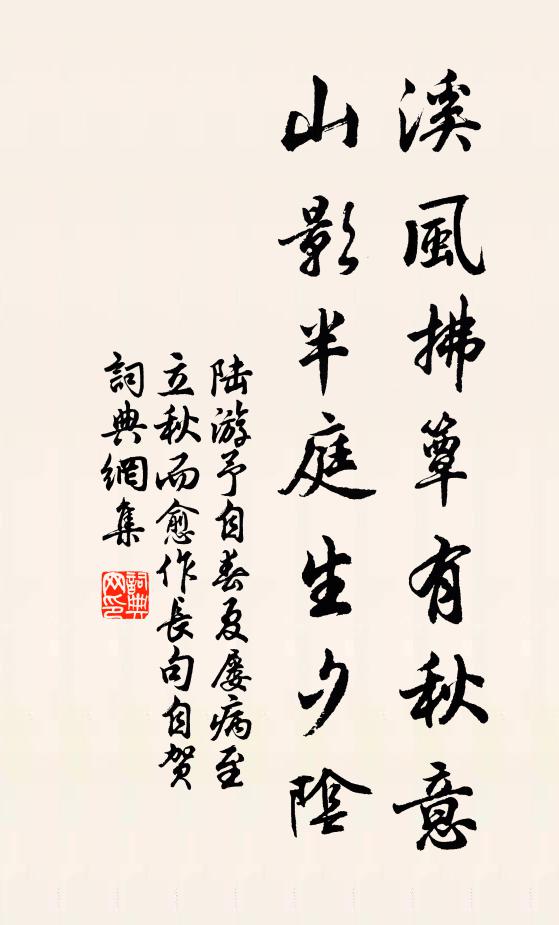 溪風拂簟有秋意
山影半庭生夕陰
陆游予自春夏屡病至
立秋而愈作长句自贺
詞典網集
詞典
网印